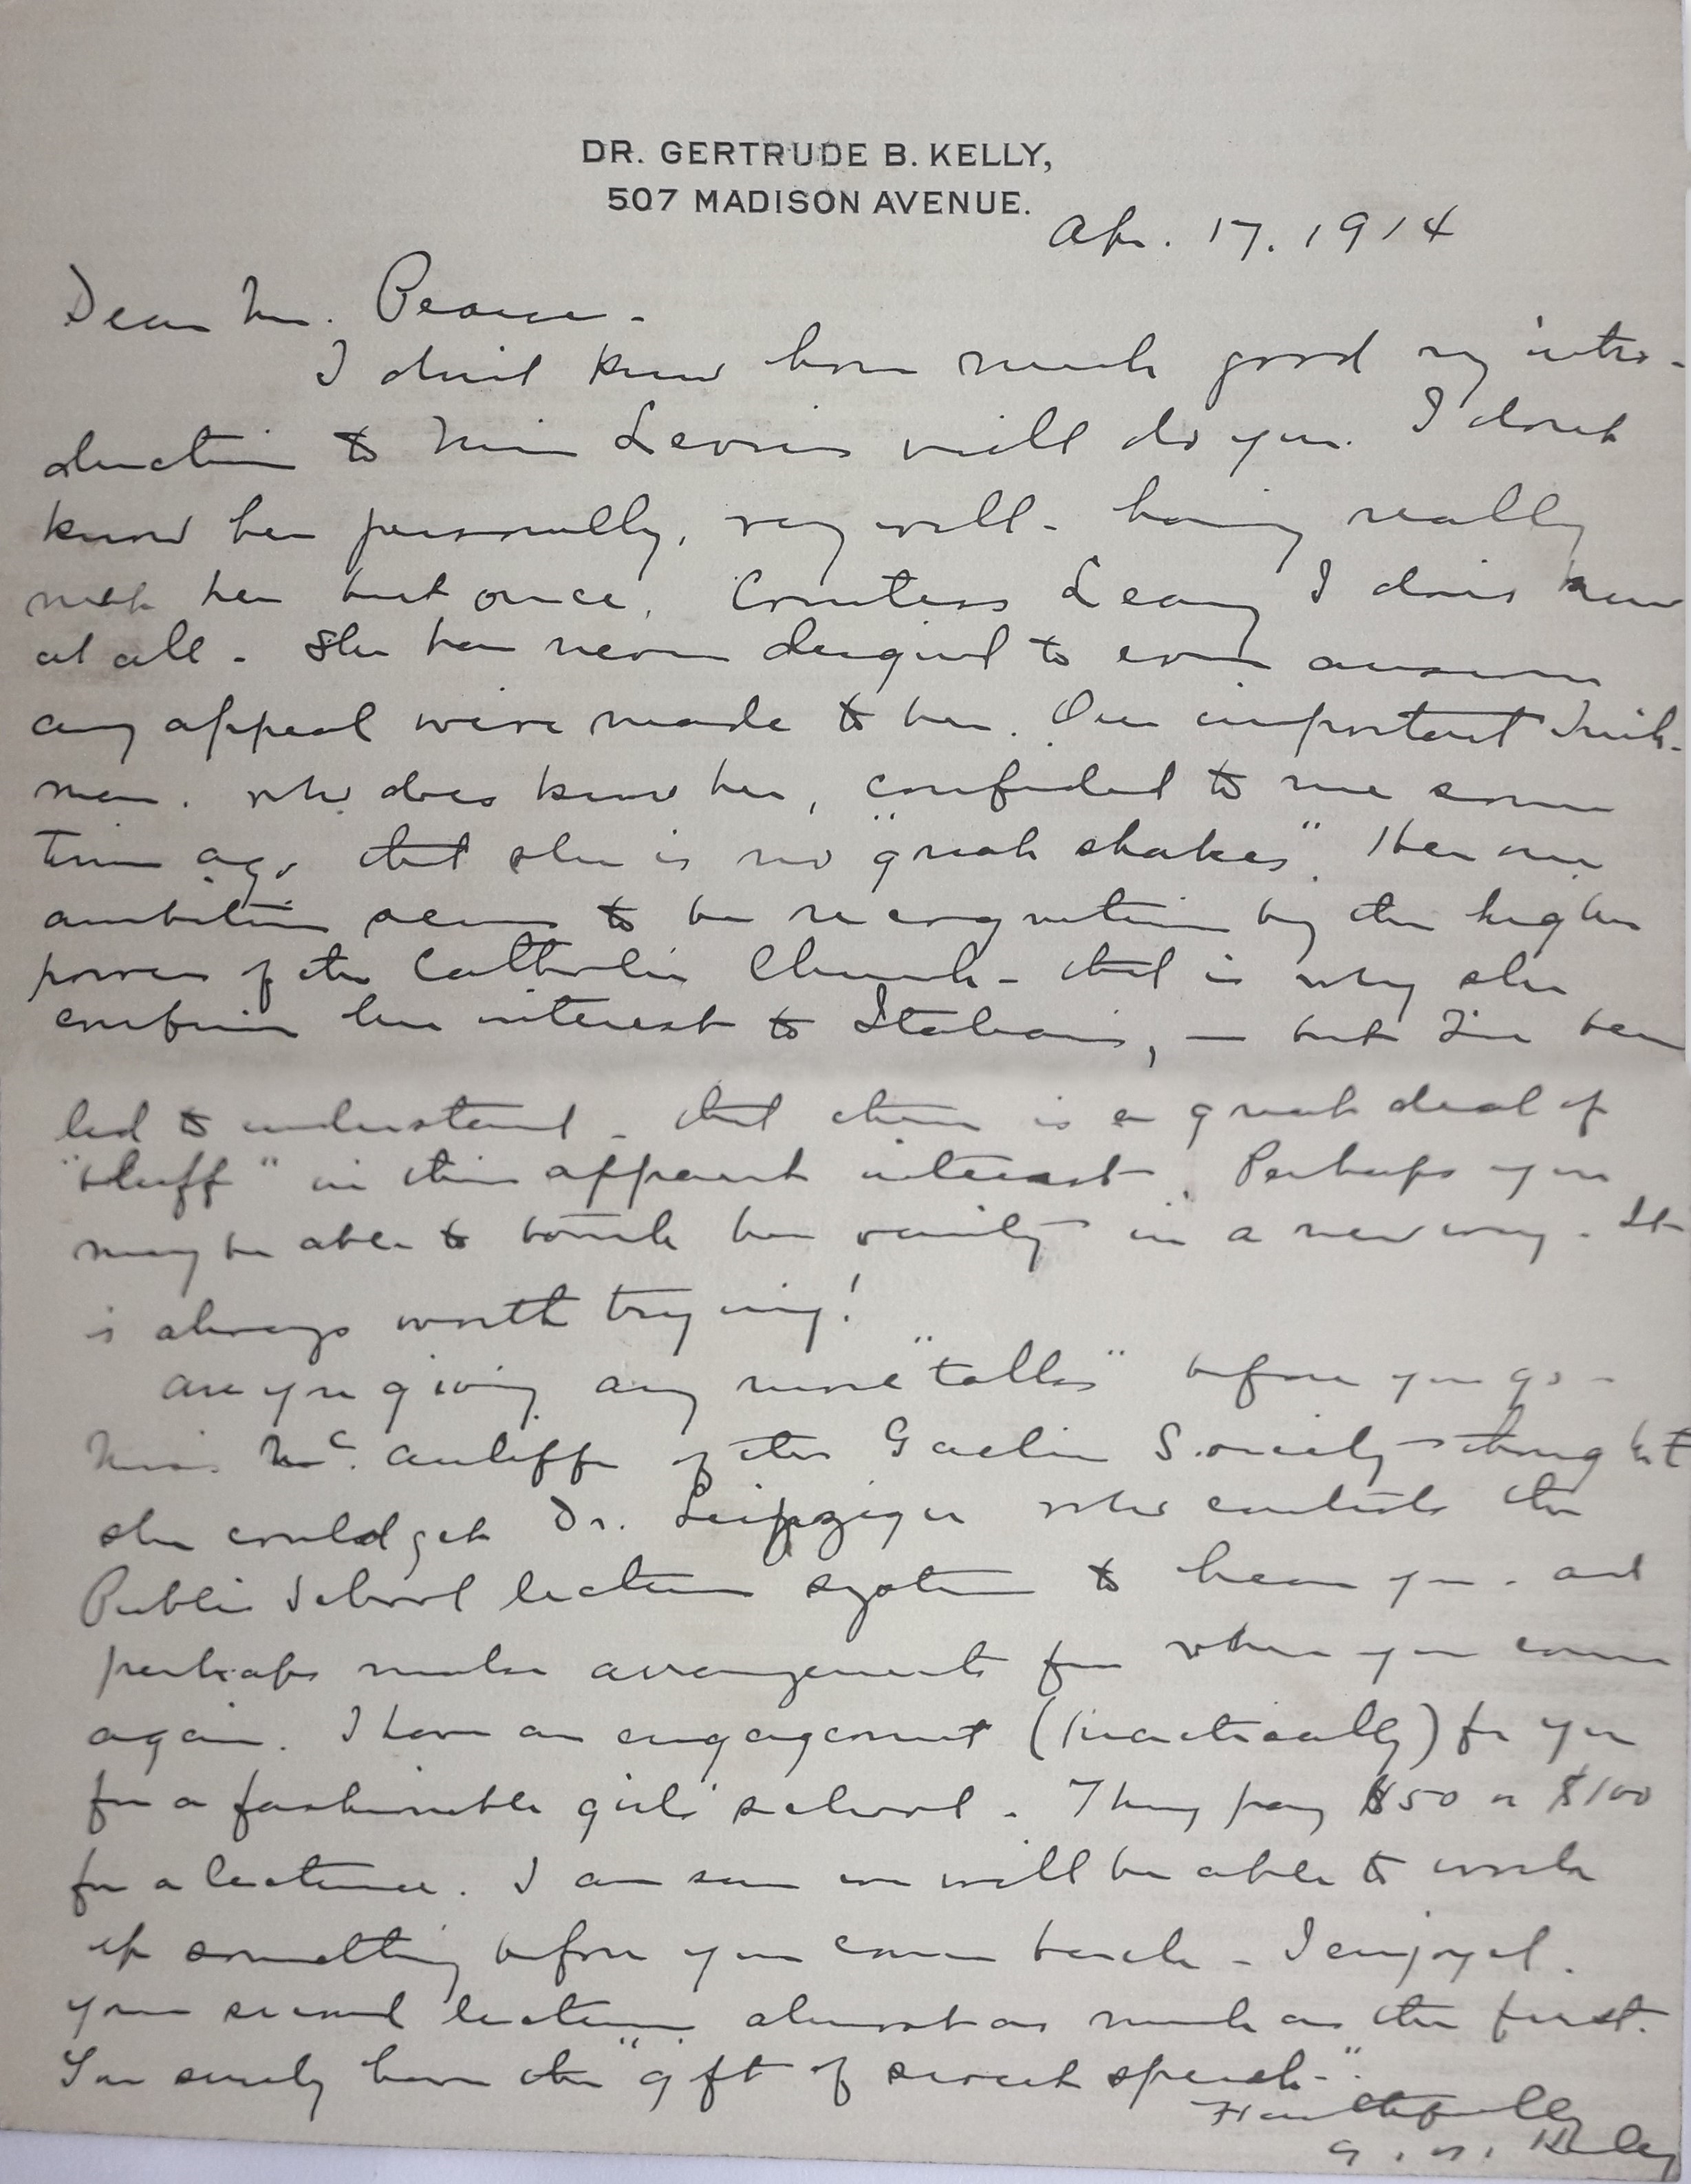 DR. GERTRUDE B. KELLY,
507 MADISON AVENUE.
Apr. 17. 1914
Dear Mr. Pearse -
I don't know how much good my intro-
duction to Miss will do you. I don't
know her personally, very well - having really
met her but once. Countess Leary I don't know
at all - She has never deigned to even answer
any appeal we've made to her. One important Irish-
man. who does know her, confided to me some
time ago that she is no "great shakes". Her one
ambition seems to be recognition by the higher
powers of the Catholic Church - that is why she
confines her interest to Italians, - but I've been
led to understand - that there is a great deal of
"bluff" in this apparent interest. Perhaps you
may be able to touch her vanity in a new way. It
is always worth trying!
Are you giving any more "talks" before you go -
Miss McAuliffe of the Gaelic Society thought
she could get Dr. Leipziger who controls the
Public School lecture system to hear you - and
perhaps make arrangements for when you come
again. I have an engagement (practically) for you
for a fashionable girls' school - They pay $50 or $100
for a lecture. I am sure we will be able to work
up something before you come back - I enjoyed
your second lecture almost as much as the first.
You surely have the "gift of sweet speech -"
Faithfully
G. B. Kelly